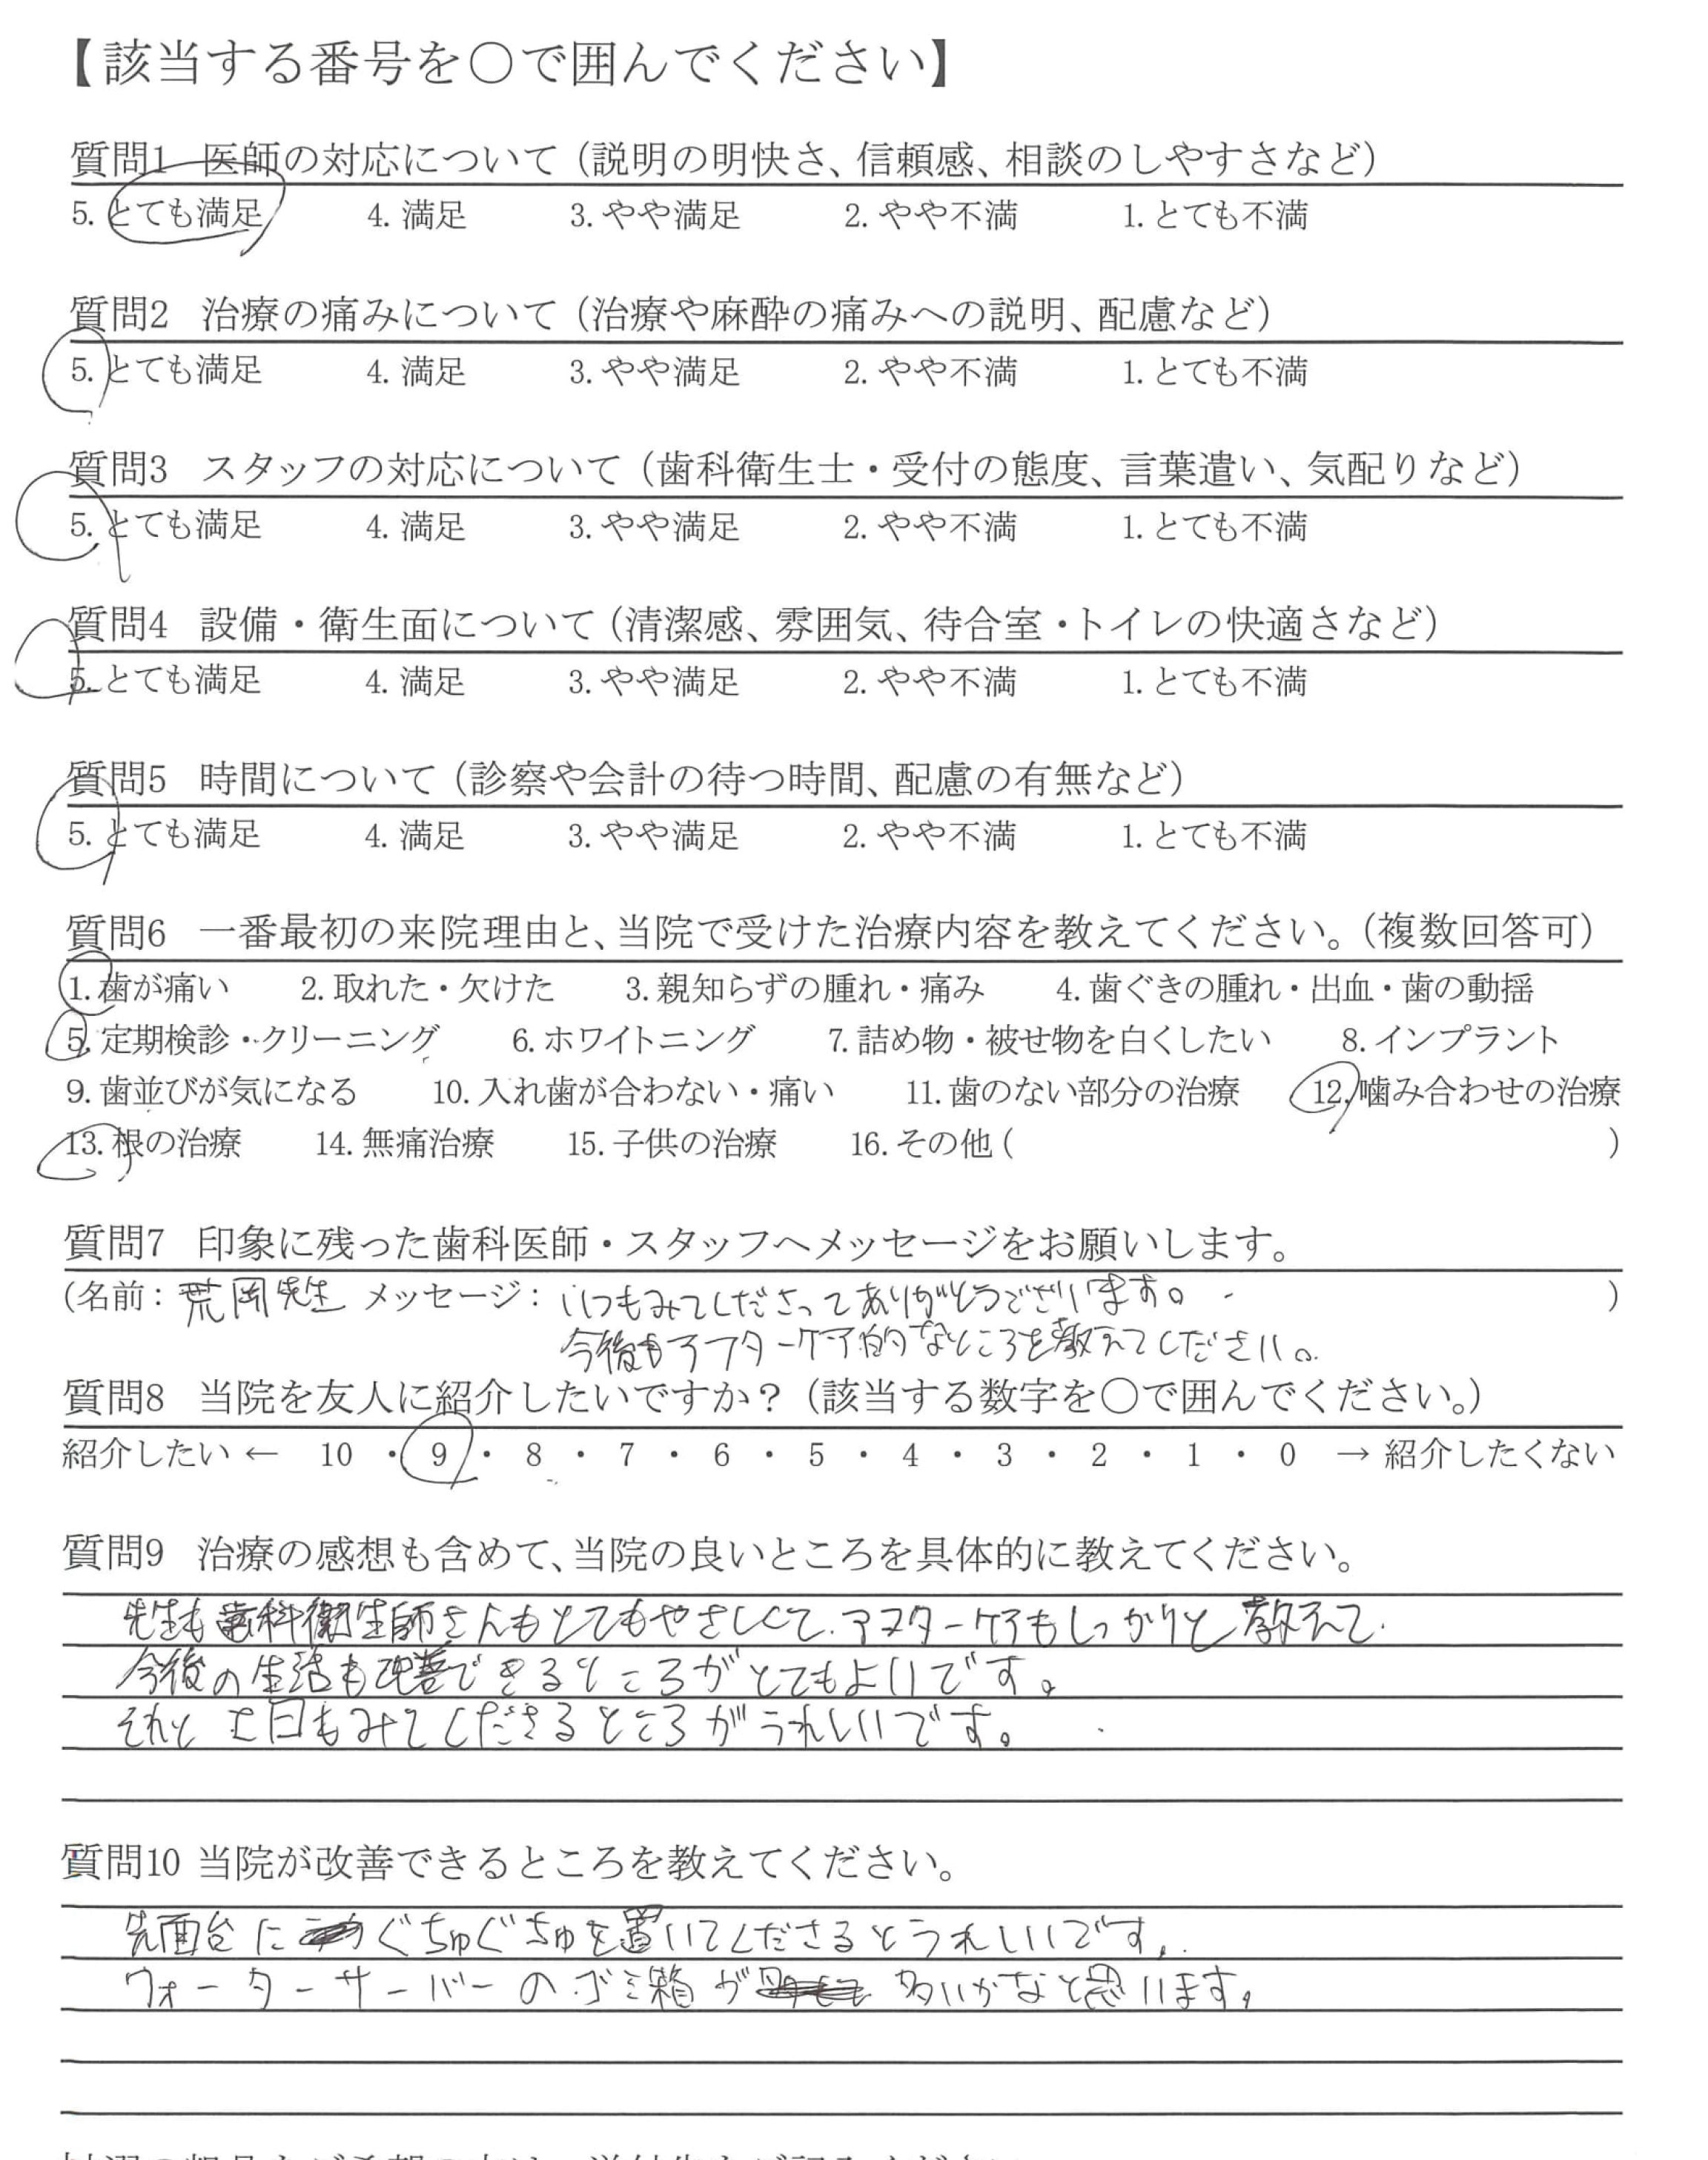 【該当する番号を○で囲んでください】
質問1 医師の対応について（説明の明快さ、信頼感、相談のしやすさなど）
5. とても満足 4. 満足 3. やや満足 2. やや不満 1. とても不満
質問2 治療の痛みについて（治療や麻酔の痛みへの説明、配慮など）
5. とても満足 4. 満足 3. やや満足 2. やや不満 1. とても不満
質問3 スタッフの対応について（歯科衛生士・受付の態度、言葉遣い、気配りなど）
5. とても満足 4. 満足 3. やや満足 2. やや不満 1. とても不満
質問4 設備・衛生面について（清潔感、雰囲気、待合室・トイレの快適さなど）
5. とても満足 4. 満足 3. やや満足 2. やや不満 1. とても不満
質問5 時間について（診察や会計の待つ時間、配慮の有無など）
5. とても満足 4. 満足 3. やや満足 2. やや不満 1. とても不満
質問6 一番最初の来院理由と、当院で受けた治療内容を教えてください。（複数回答可）
1. 歯が痛い 2. 取れた・欠けた 3. 親知らずの腫れ・痛み 4. 歯ぐきの腫れ・出血・歯の動揺
5. 定期検診・クリーニング 6. ホワイトニング 7. 詰め物・被せ物を白くしたい 8. インプラント
9. 歯並びが気になる 10. 入れ歯が合わない・痛い 11. 歯のない部分の治療 12. 噛み合わせの治療
13. 根の治療 14. 無痛治療 15. 子供の治療 16. その他（ ）
質問7 印象に残った歯科医師・スタッフへメッセージをお願いします。
（名前：荒岡先生 メッセージ：いつもみてくださってありがとうございます。 ）
今後もアフターケア的なところを教えてください。
質問8 当院を友人に紹介したいですか？（該当する数字を○で囲んでください。）
紹介したい ← 10 ・ 9 ・ 8 ・ 7 ・ 6 ・ 5 ・ 4 ・ 3 ・ 2 ・ 1 ・ 0 → 紹介したくない
質問9 治療の感想も含めて、当院の良いところを具体的に教えてください。
先生も歯科衛生師さんもとてもやさしくて、アフターケアもしっかりと教えて
今後の生活も改善できるところがとてもよいです。
それと土日もみてくださるところがうれしいです。
質問10 当院が改善できるところを教えてください。
洗面台に ぐちゅぐちゅを置いてくださるとうれしいです。
ウォーターサーバーのゴミ箱が 多いかなと思います。